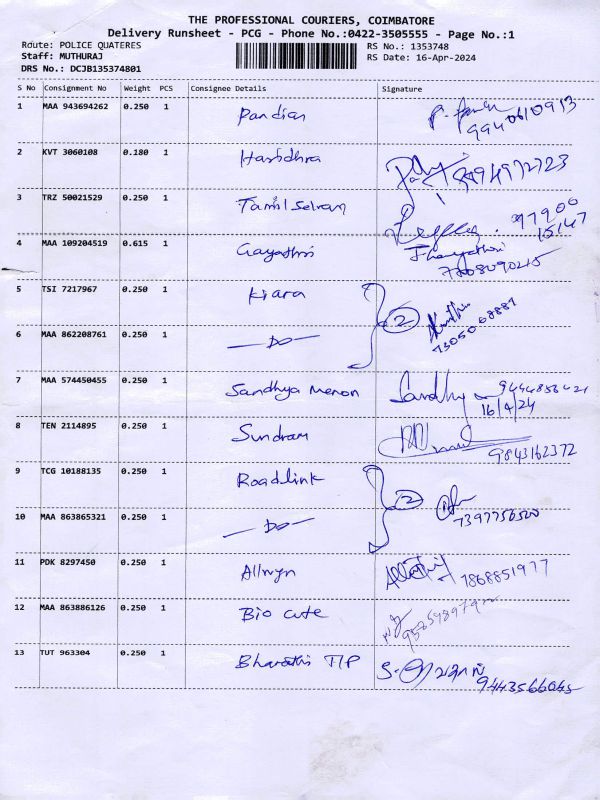 THE PROFESSIONAL COURIERS, COIMBATORE
Delivery Runsheet - PCG - Phone No.:0422-3505555 - Page No.:1
Route: POLICE QUATERES RS No.: 1353748
Staff: MUTHURAJ RS Date: 16-Apr-2024
DRS No.: DCJB135374801
S No Consignment No Weight PCS Consignee Details Signature
1 MAA 943694262 0.250 1 Pandian
9940610913
2 KVT 3060108 0.180 1 Haridhra
8494972723
3 TRZ 50021529 0.250 1 Tamil Selvan 97900
15147
4 MAA 109204519 0.615 1 Gayathri
5 TSI 7217967 0.250 1 Kiara 2
7305068881
6 MAA 862208761 0.250 1 — Do —
7 MAA 574450455 0.250 1 Sandhya Menon Sandhya
16/4/24
8 TEN 2114895 0.250 1 Sundram
9843162372
9 TCG 10188135 0.250 1 Roadlink 2
7397756520
10 MAA 863865321 0.250 1 — Do —
11 PDK 8297450 0.250 1 Allwyn 7868851977
12 MAA 863886126 0.250 1 Bio cute
13 TUT 963304 0.250 1 Bharathi T/P
9443566045